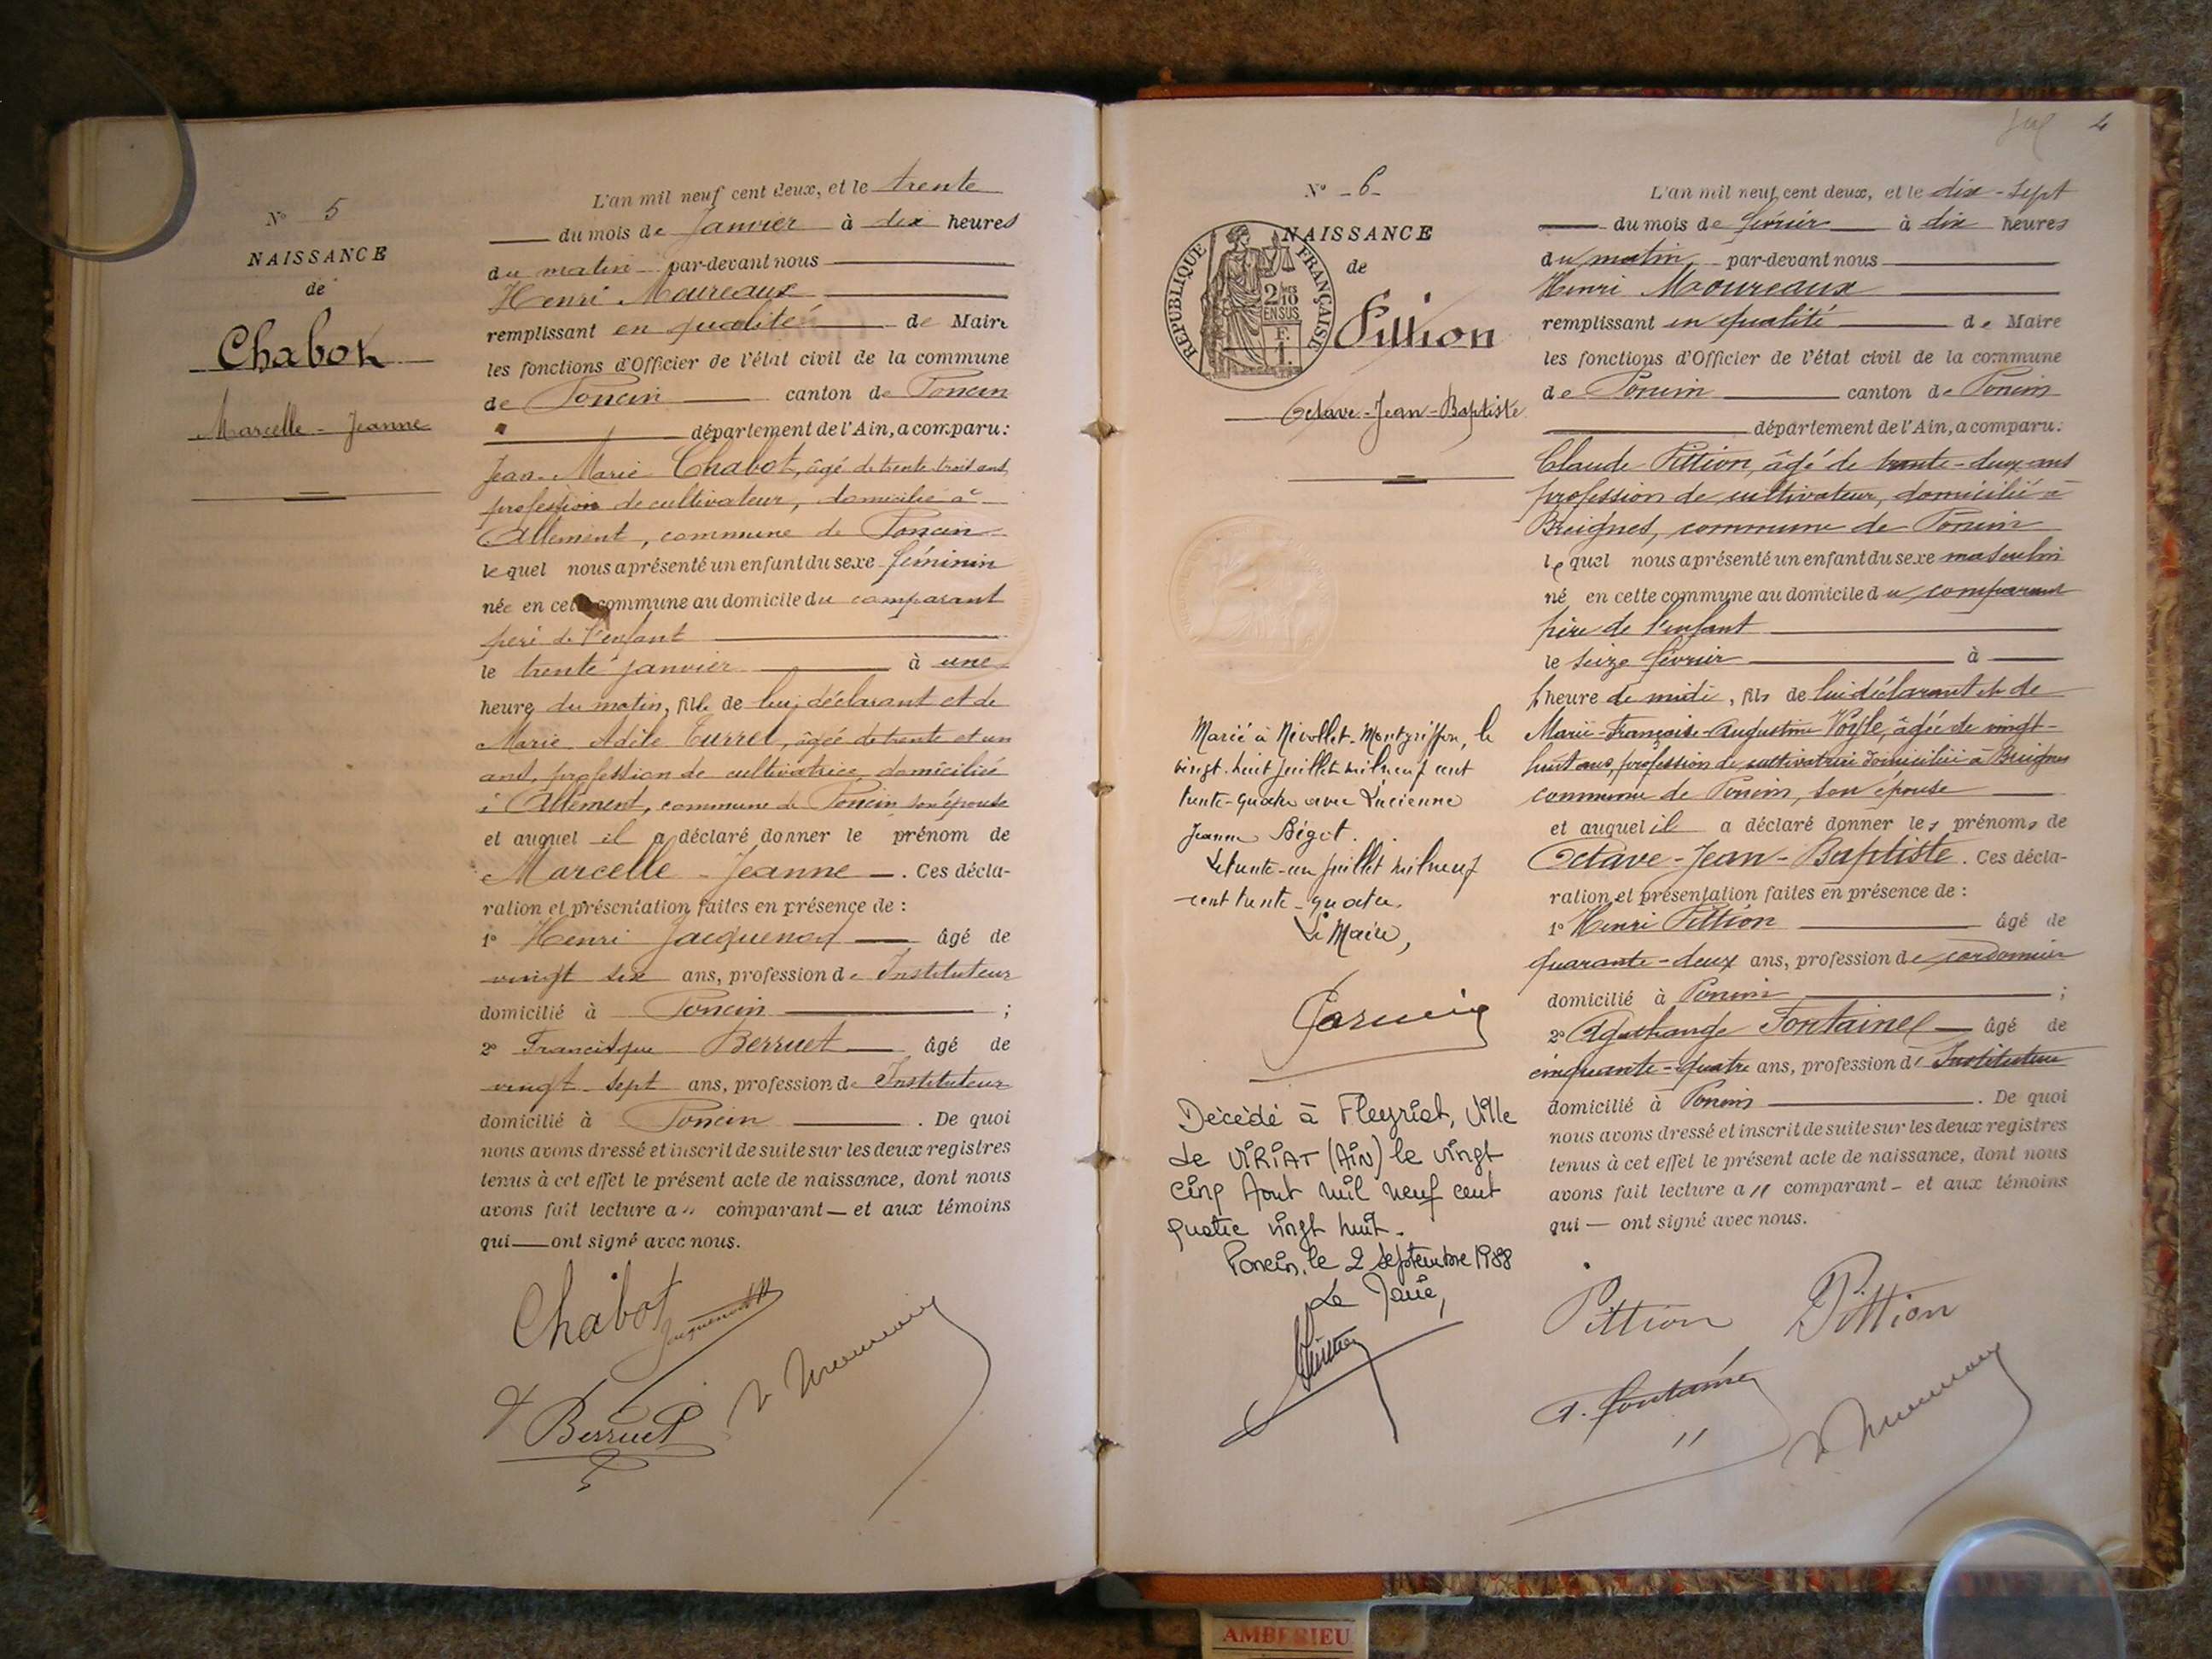 N° 5
NAISSANCE
de
Chabot
Marcelle - Jeanne
L'an mil neuf cent deux, et le trente
du mois de Janvier à dix heures
du matin par-devant nous
Henri Moureaux
remplissant en qualité de Maire
les fonctions d'Officier de l'état civil de la commune
de Poncin canton de Poncin
département de l'Ain, a comparu:
Jean-Marie Chabot, âgé de trente trois ans
profession de cultivateur, domicilié à
Allement, commune de Poncin
lequel nous a présenté un enfant du sexe féminin
née en cette commune au domicile du comparant
père de l'enfant
le trente janvier à une
heure du matin, fille de lui, déclarant et de
Marie Adèle Turrel, âgée de trente et un
ans, profession de cultivatrice, domiciliée
à Allement, commune de Poncin son épouse
et auquel il a déclaré donner le prénom de
Marcelle - Jeanne. Ces décla-
ration et présentation faites en présence de :
1° Henri Jacquenod âgé de
vingt six ans, profession de Instituteur
domicilié à Poncin ;
2° Francisque Berruet âgé de
vingt sept ans, profession de Instituteur
domicilié à Poncin . De quoi
nous avons dressé et inscrit de suite sur les deux registres
tenus à cet effet le présent acte de naissance, dont nous
avons fait lecture a" comparant — et aux témoins
qui — ont signé avec nous.
Chabot
Jacquenod
Berruet
4
N° - 6 -
NAISSANCE
de
RÉPUBLIQUE FRANÇAISE
2/10
EN SUS
Pittion
Octave - Jean - Baptiste
Marié à Nivollet-Montgriffon, le
vingt-huit juillet mil neuf cent
trente-quatre avec Lucienne
Jeanne Bégot.
Le trente-un juillet mil neuf
cent trente-quatre.
Le Maire,
Décédé à Fleyriat, Ville
de VIRIAT (AIN) le vingt
cinq Aout mil neuf cent
quatre vingt huit.
Poncin, le 2 septembre 1988
L'an mil neuf cent deux, et le dix-sept
du mois de février à dix heures
du matin par-devant nous
Henri Moureaux
remplissant en qualité de Maire
les fonctions d'Officier de l'état civil de la commune
de Poncin canton de Poncin
département de l'Ain, a comparu:
Claude Pittion, âgé de trente-deux ans
profession de cultivateur, domicilié à
Breignes, commune de Poncin
lequel nous a présenté un enfant du sexe masculin
né en cette commune au domicile du comparant
père de l'enfant
le seize février à
heure de midi, fils de lui déclarant et de
Marie-Françoise-Augustine âgée de vingt-
huit ans, profession de cultivatrice domiciliée à Breignes
commune de Poncin, son épouse
et auquel il a déclaré donner les prénoms de
Octave - Jean - Baptiste. Ces décla-
ration et présentation faites en présence de :
1° Henri Pittion âgé de
quarante-deux ans, profession de cordonnier
domicilié à Poncin ;
2° Agathange Fontaine âgé de
cinquante-quatre ans, profession de Instituteur
domicilié à Poncin . De quoi
nous avons dressé et inscrit de suite sur les deux registres
tenus à cet effet le présent acte de naissance, dont nous
avons fait lecture a" comparant — et aux témoins
qui — ont signé avec nous.
Pittion Pittion
A. Fontaine
AMBERIEU